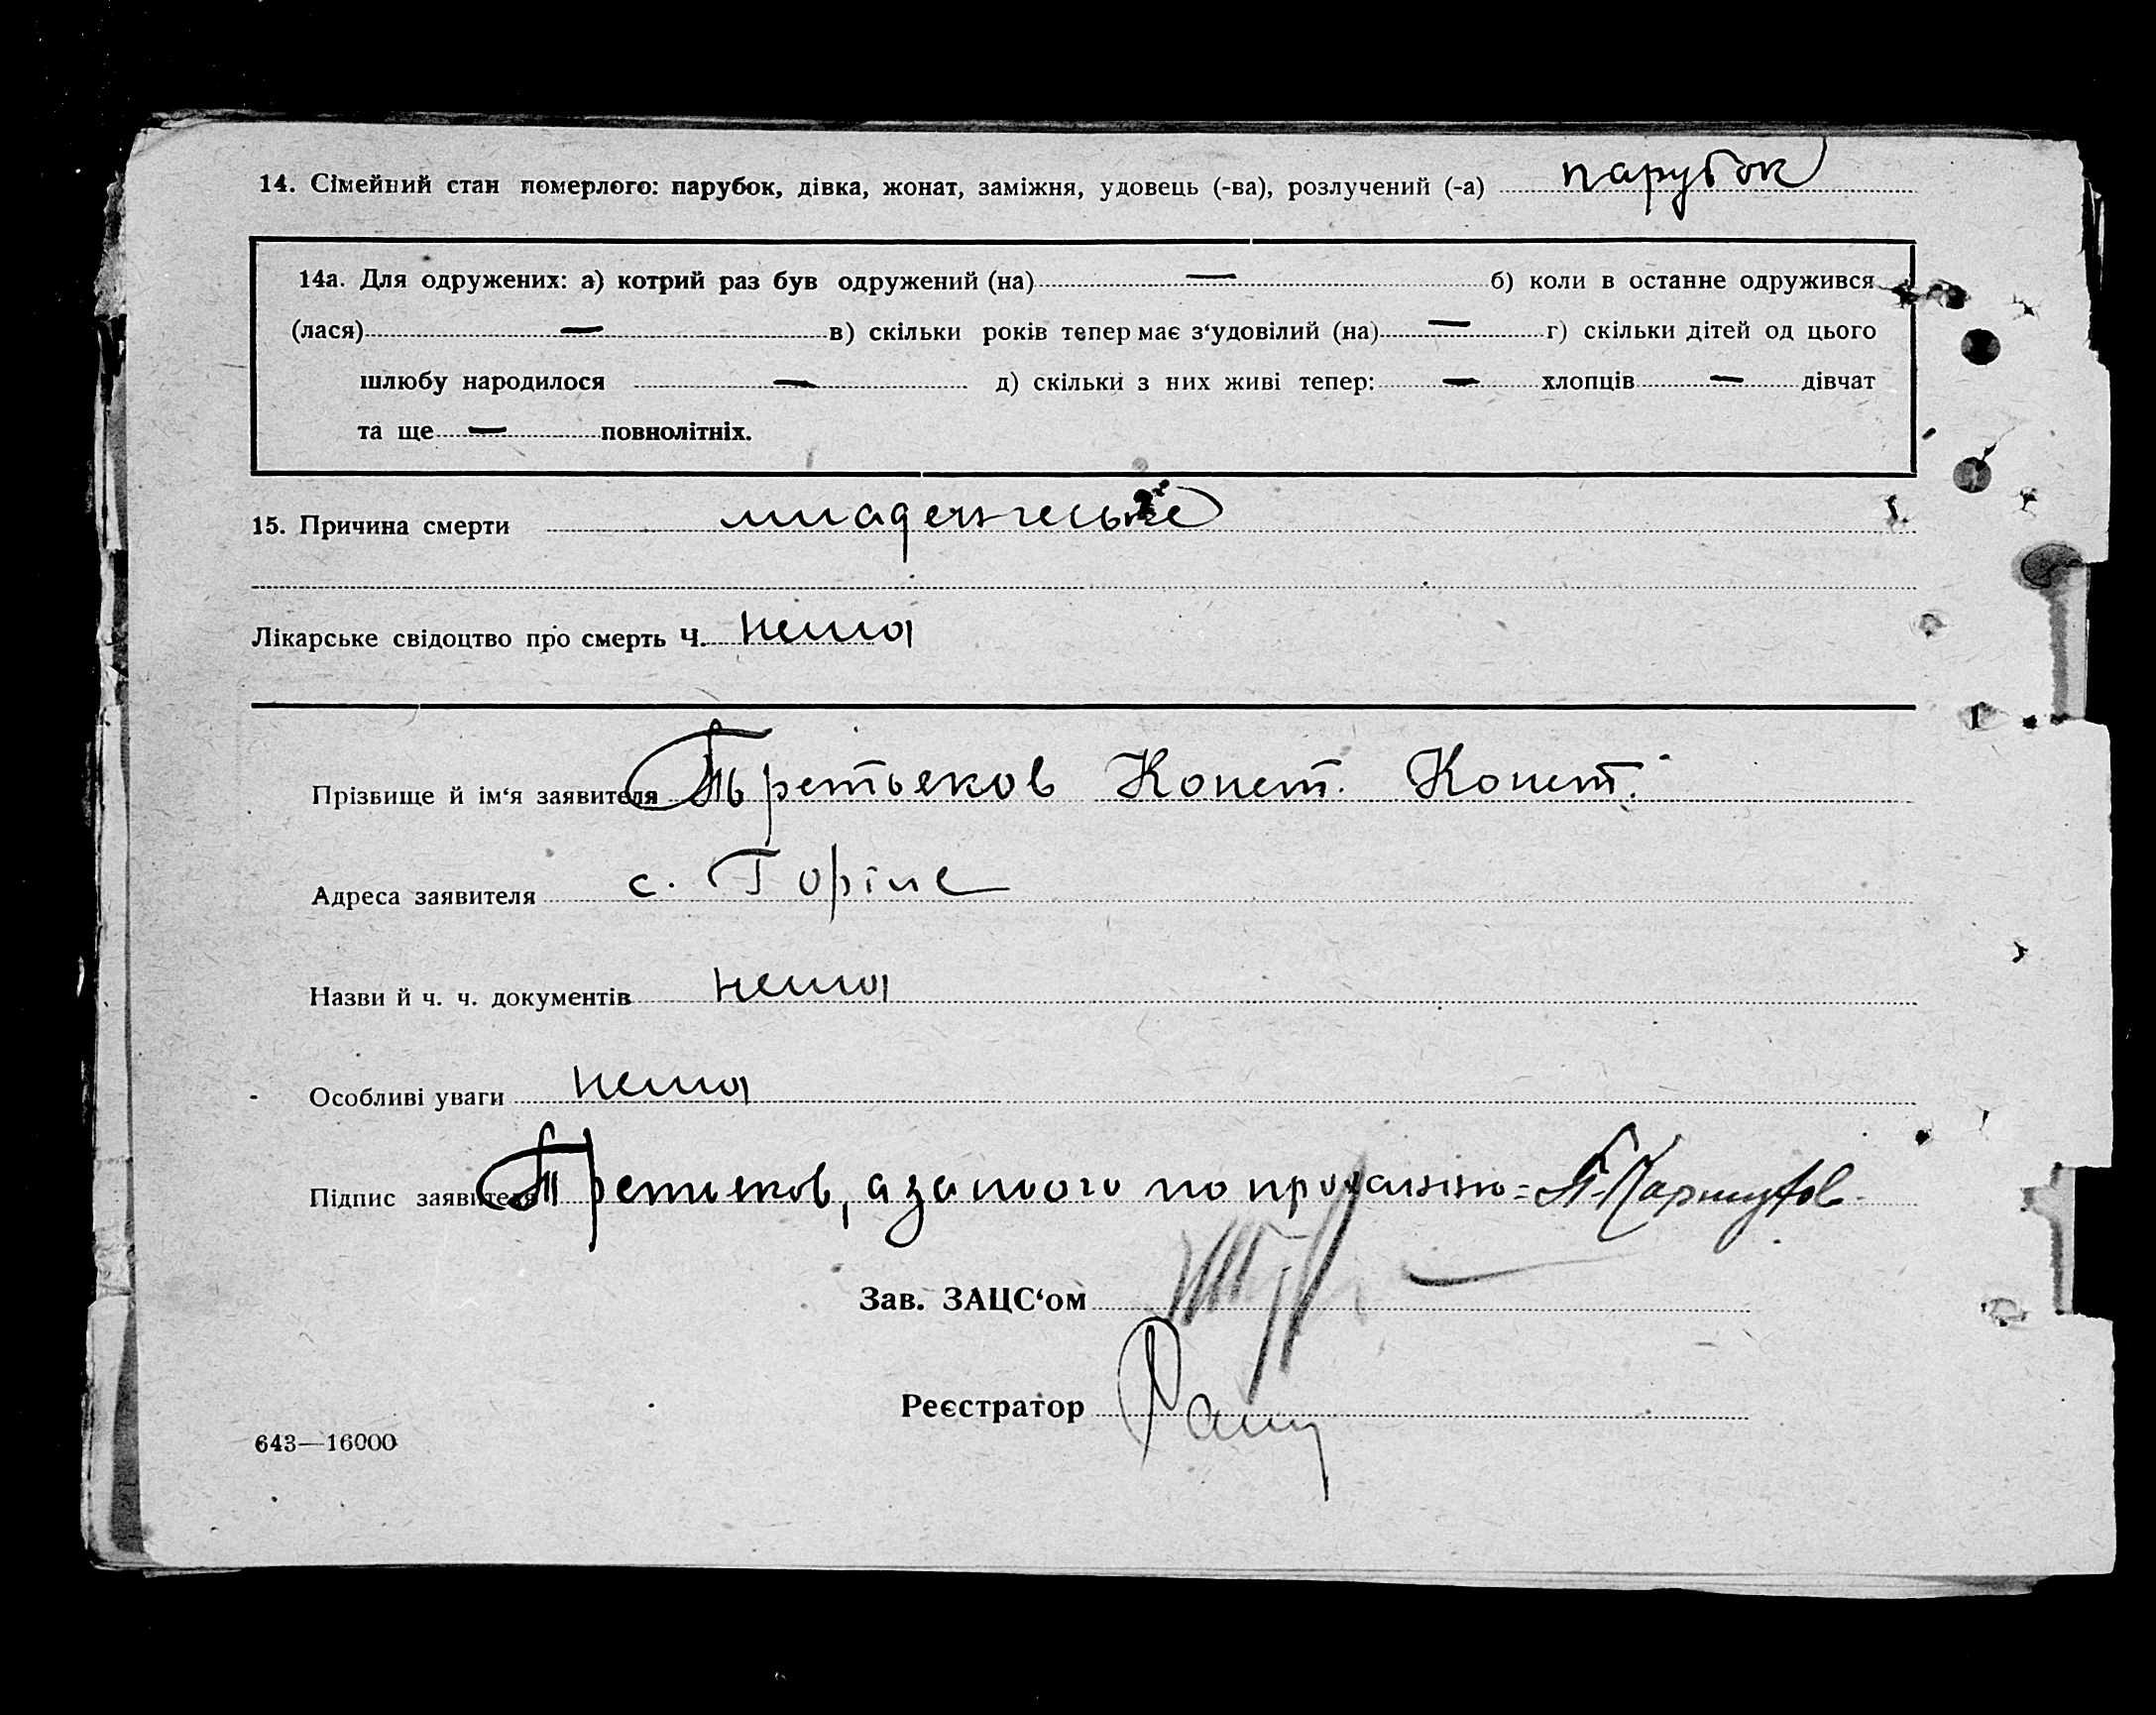 14. Сімейний стан померлого: парубок, дівка, жонат, заміжня, удовець (-ва), розлучений (-а) парубок
14а. Для одружених: а) котрий раз був одружений (на) — б) коли в останне одружився
(лася) — в) скільки років тепер має з‘удовілий (на) — г) скільки дітей од цього
шлюбу народилося — д) скільки з них живі тепер: — хлопців — дівчат
та ще — повнолітніх.
15. Причина смерти младенческе
Лікарське свідоцтво про смерть Ч. нема
Прізвище й ім‘я заявителя Третьеков Конст. Конст.
Адреса заявителя с. Горіле
Назви й ч. ч. документів нема
Особливі уваги нема
Підпис заявителя Третьеков, а за його по проханню =
Зав. ЗАЦС‘ом
Реєстратор
643—16000